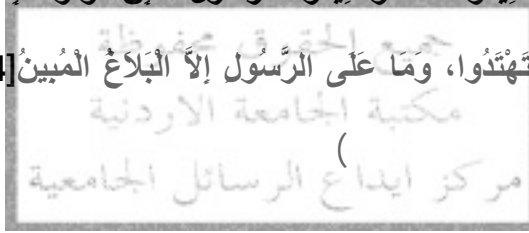 تَهْتَدُوا، وَمَا عَلَى الرَّسُولِ إِلاَّ الْبَلاَغُ الْمُبِينُ[
جميع الحقوق محفوظة
مكتبة الجامعة الاردنية
(
مركز ايداع الرسائل الجامعية